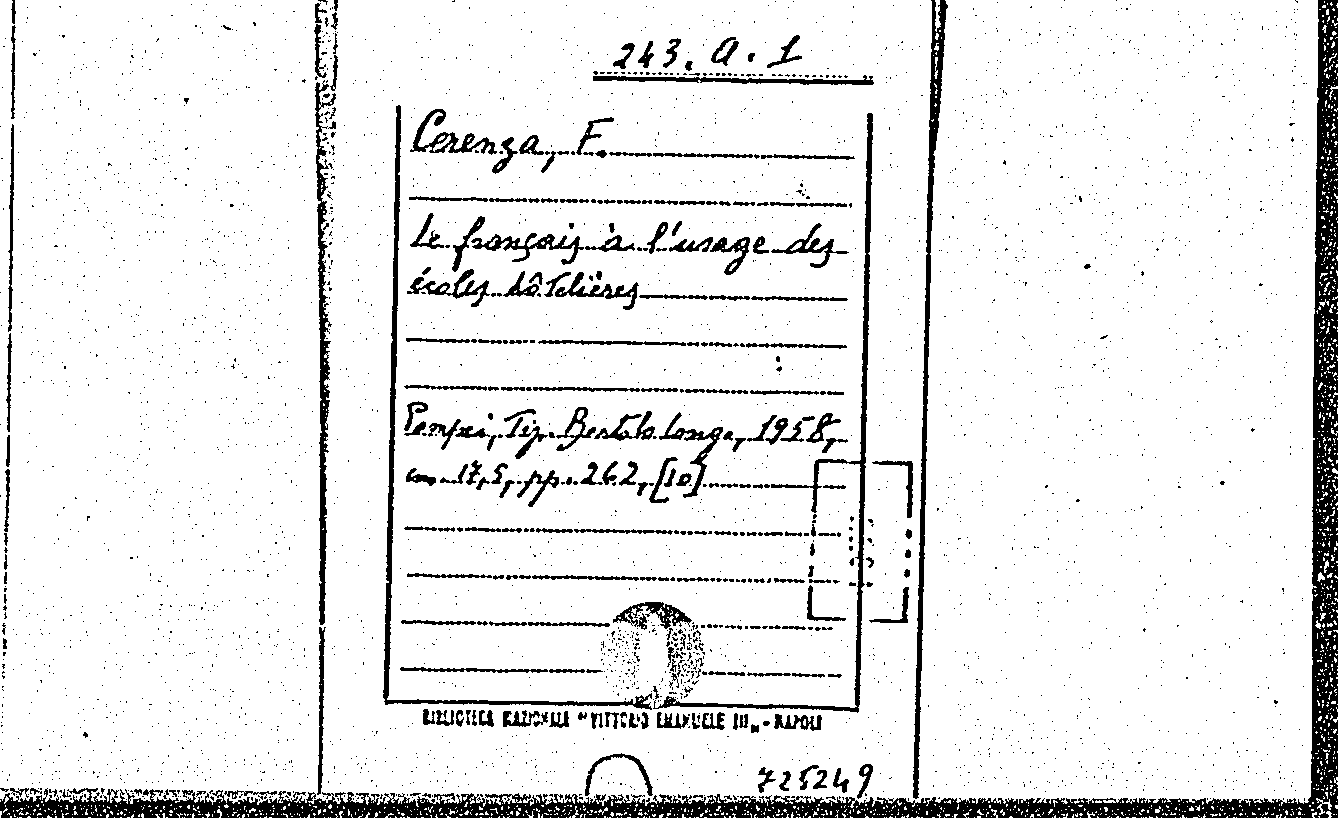 243. A. 1
Cerenza, F.
Le français à l'usage des
écoles hôtelières
Pompei, Tip. Bartolo Longo, 1958,
cm. 17,5, pp. 262, [10]
BIBLIOTECA NAZIONALE "VITTORIO EMANUELE III„ - NAPOLI
725249